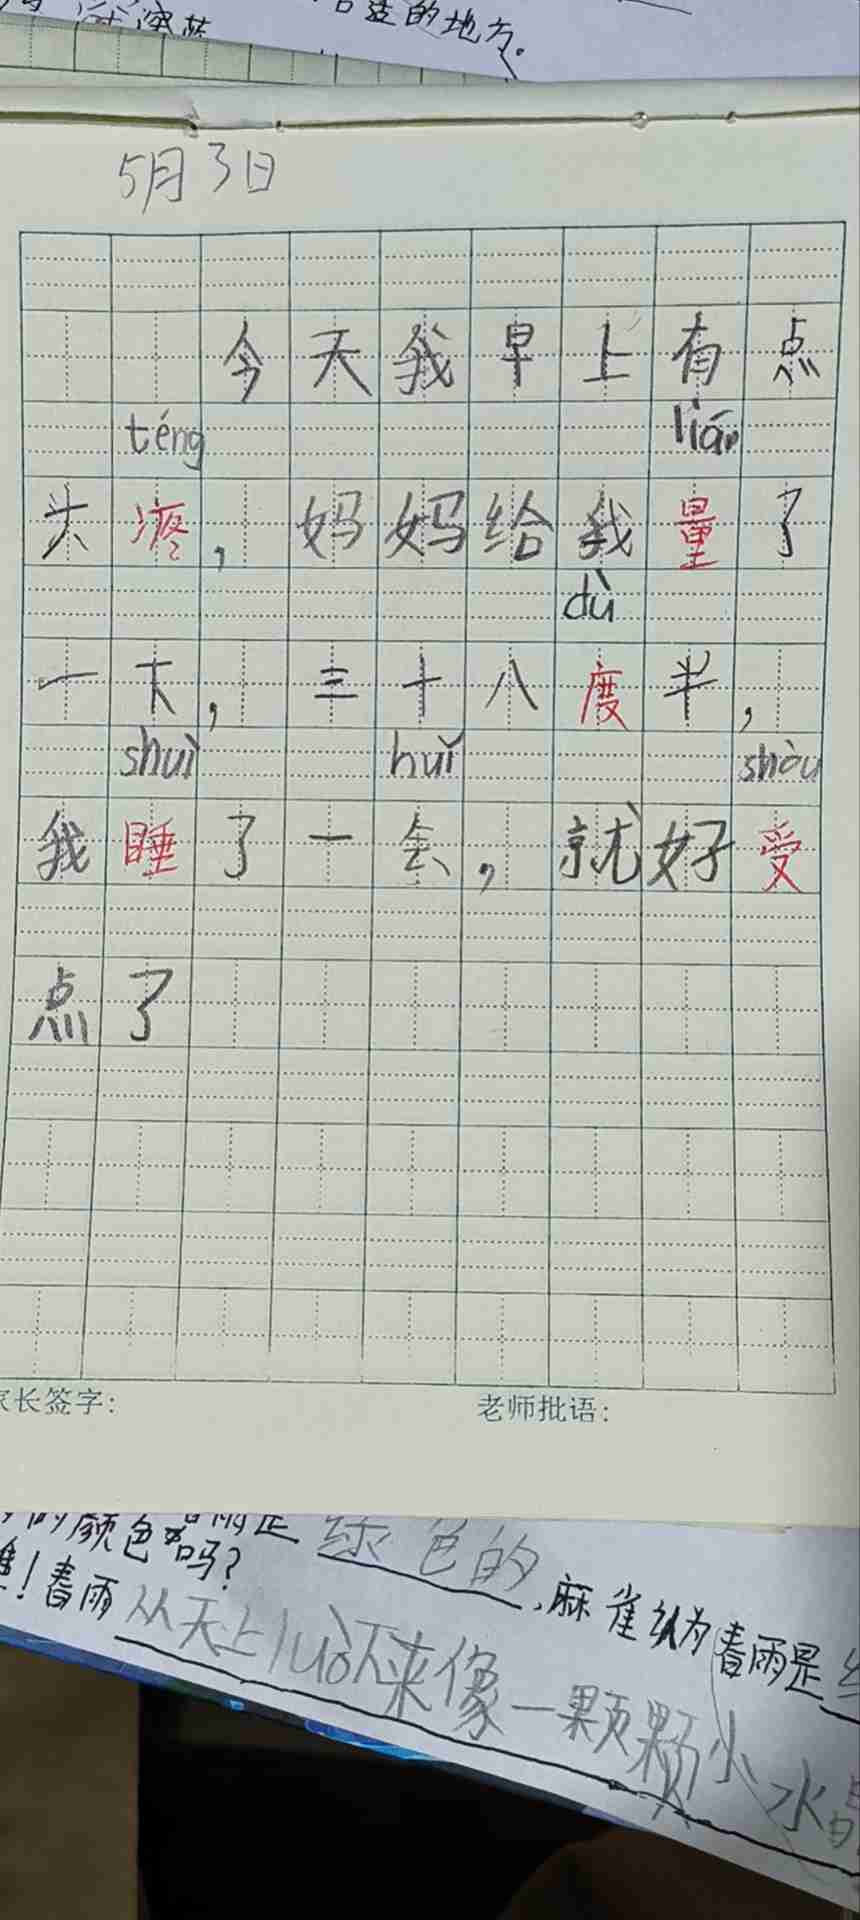 合适的地方。
5月3日
今天我早上有点
téng liáng
头疼，妈妈给我量了
dù
一下，三十八度半，
shuì huǐ shòu
我睡了一会，就好受
点了
家长签字： 老师批语：
的颜色 绿色的，麻雀认为春雨是
吗？
！春雨从天上luò下来像一颗颗小水